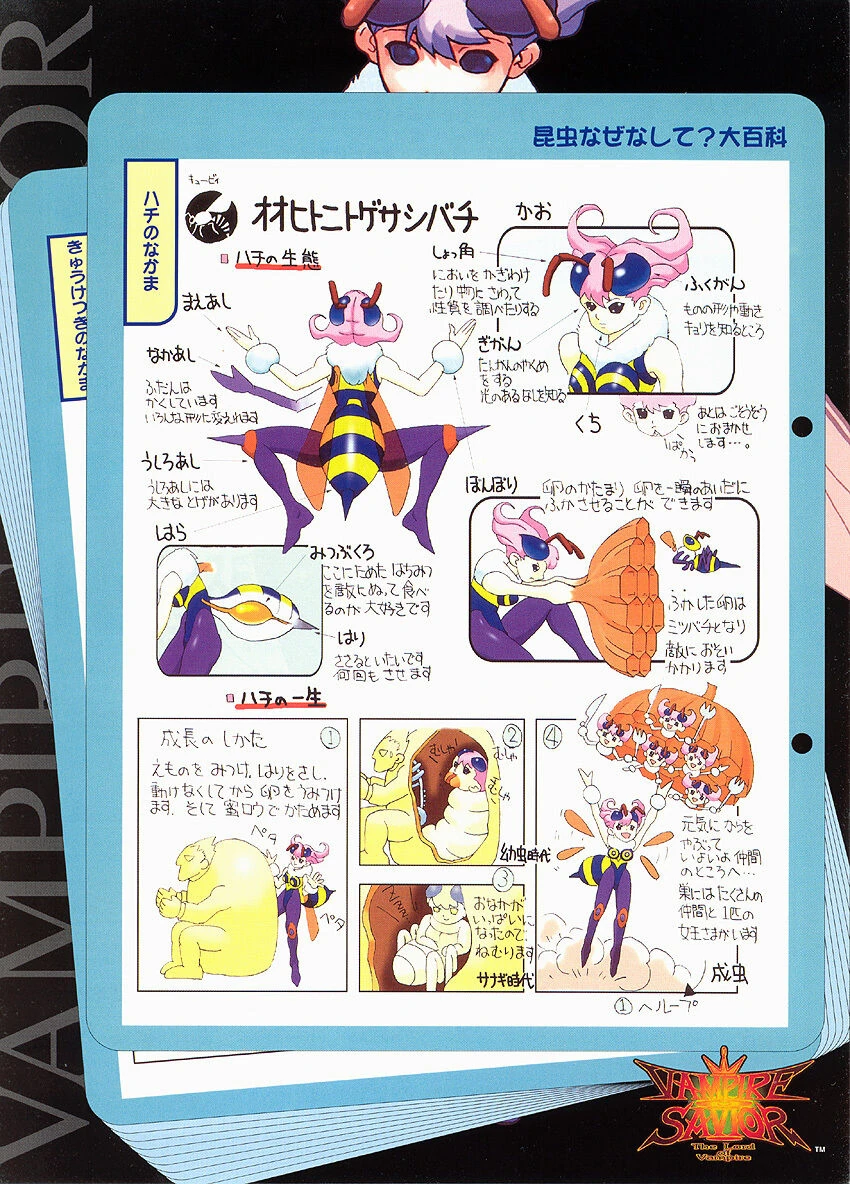 VAMPIRE
OR
昆虫なぜなして?大百科
ハチのなかま
きゅうけつきのなかま
キュービィ
オオヒトニトゲサシバチ
ハチの生態
まえあし
なかあし
ふだんは
かくしています
いろんな形に変えれます
うしろあし
うしろあしには
大きなとげがあります
はら
みつぶくろ
ここにためたはちみつ
を敵にぬって食べ
るのが大好きです
はり
ささるといたいです
何回もさせます
かお
しょっ角
においをかぎわけ
たり物にさわって
性質を調べたりする
ぎがん
たんがんのやくめ
をする
光のあるなしを知る
ふくがん
ものの形や動き
キョリを知るところ
くち
ぱかっ
あとはごそうぞう
におまかせ
します…。
ぼんぼり
卵のかたまり 卵を一瞬のあいだに
ふかさせることができます
ふかした卵は
ミツバチとなり
敵におそい
かかります
ハチの一生
成長のしかた
①
えものをみつけ、はりをさし、
動けなくしてから卵をうみつけ
ます、そして蜜ロウでかためます
ペタ
ペタ
②
むしゃ
むしゃ
むしゃ
幼虫時代
③
おなかが
いっぱいに
なったので、
ねむります
サナギ時代
④
元気にからを
やぶって
いよいよ仲間
のところへ…
巣にはたくさんの
仲間と1匹の
女王さまがいます
成虫
①へループ
VAMPIRE
SAVIOR
The Lord
of
Vampire
TM